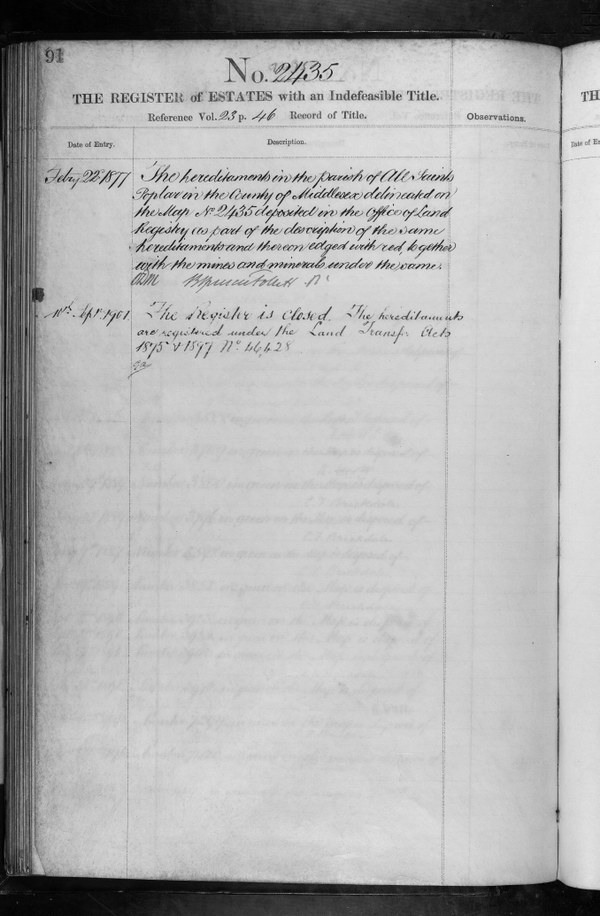 91
No. 2435
THE REGISTER of ESTATES with an Indefeasible Title.
Reference Vol. 23 p. 46 Record of Title.
Observations.
Date of Entry.
Description.
Feby 22d 1877
The hereditaments in the parish of All Saints
Poplar in the County of Middlesex delineated on
the Map No 2435 deposited in the Office of Land
Registry as part of the description of the same
hereditaments and thereon edged with red, together
with the mines and minerals under the same.
10th Apr. 1901.
The Register is closed. The hereditaments
are registered under the Land Transfer Acts
1875 & 1897 No
TH
Date of En